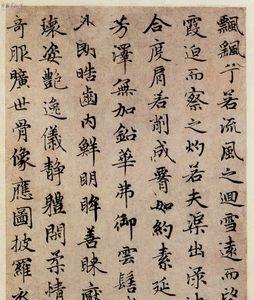 飄飄兮若流風之迴雪遠而望
霞迫而察之灼若夫渠出渌
合度肩若削成腰如約素延
芳澤無加鉛華弗御雲髻
外朗皓齒内鮮明眸善睞靨
瓌姿艷逸儀靜體閑柔情
奇服曠世骨像應圖披羅衣